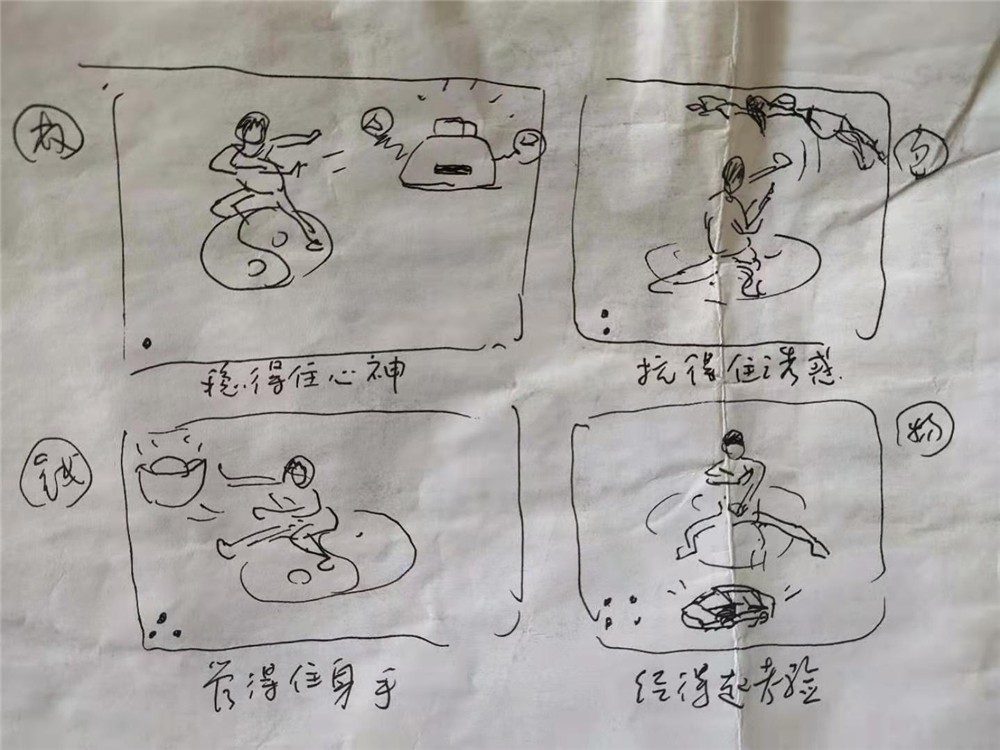 权
色
稳得住心神
抗得住诱惑
钱
物
管得住身手
经得起考验